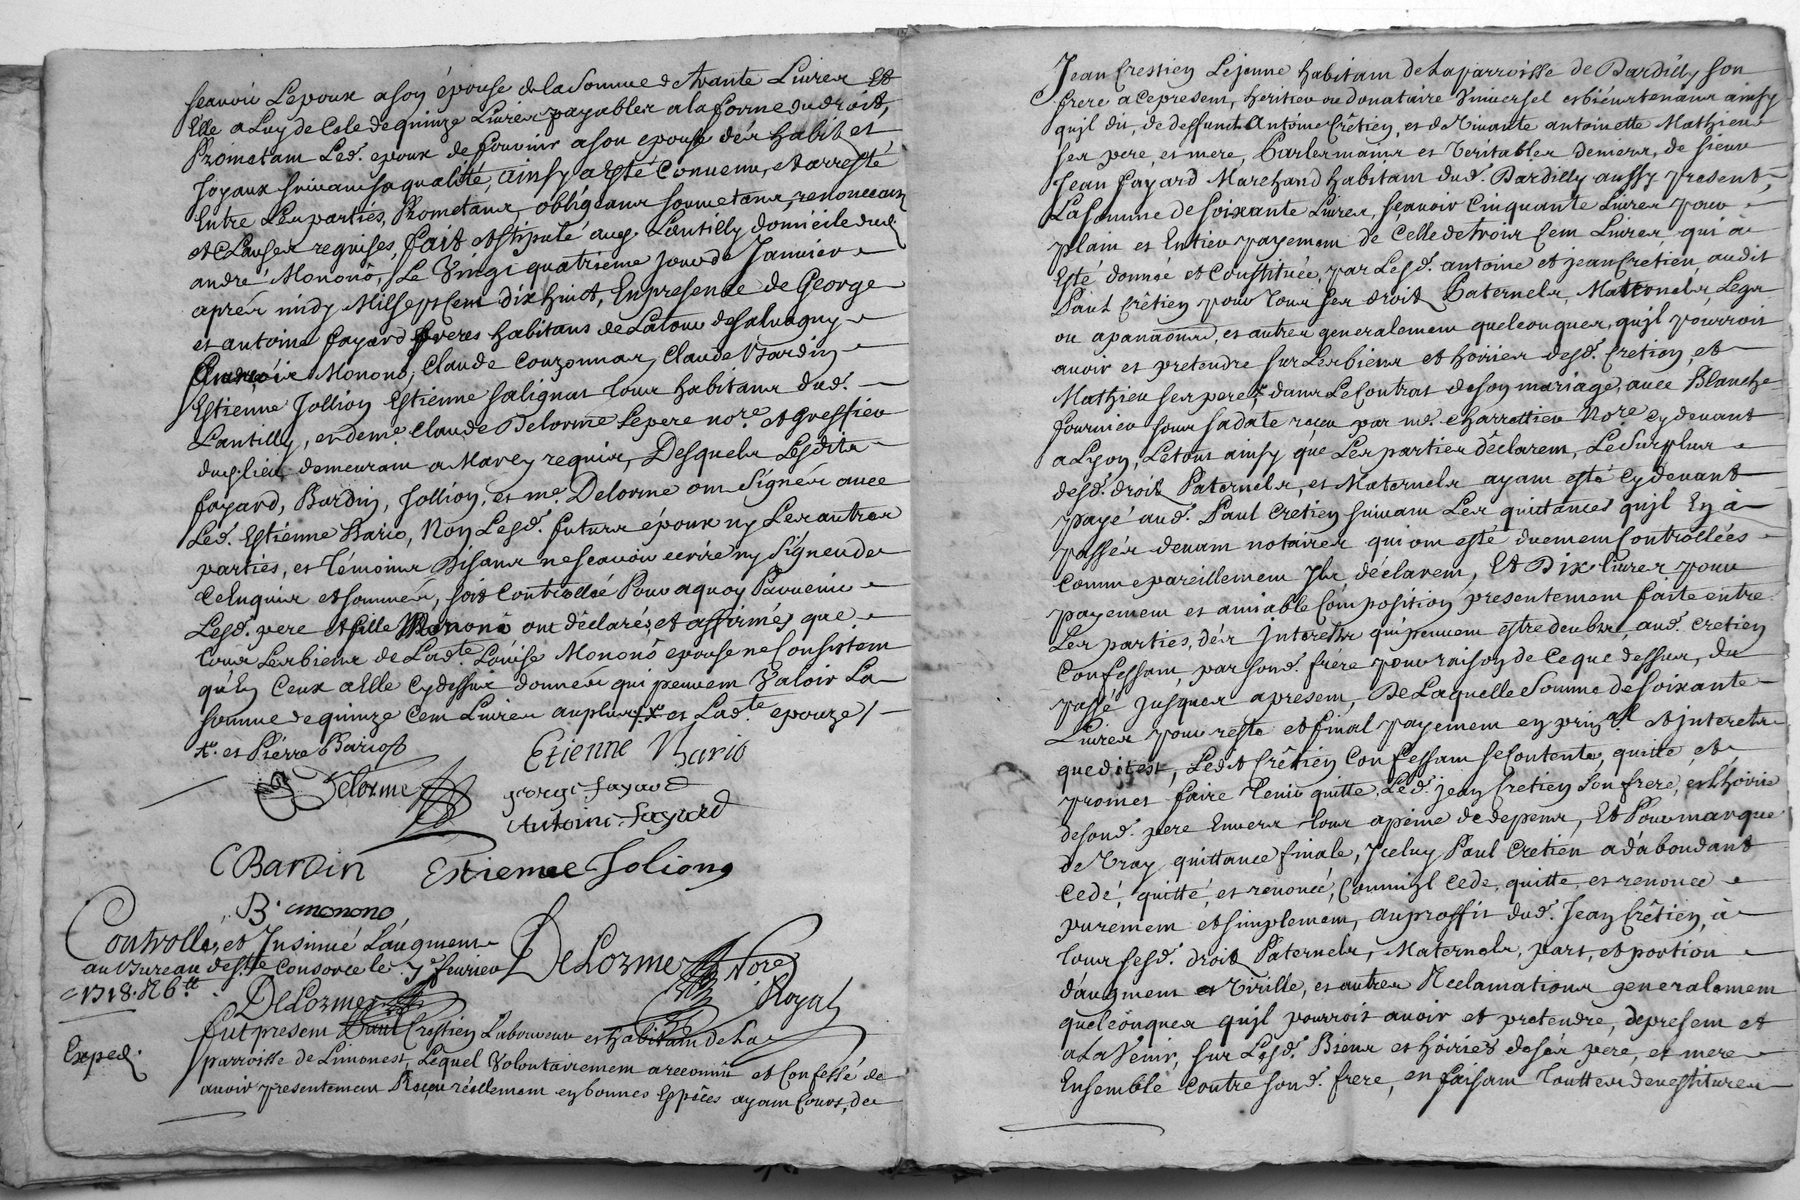 scavoir Lepoux a son épouse de la somme de trante Livres Et
Elle a Luy de Celle de quinze Livres payables a la forme du droit,
Prometant Led. epoux de fournir a son epouse des habit et
Joyaux suivant sa qualité, ainsy a esté Convenu, et arresté
Entre Les parties, Prometans, obligeans soumetans, renonceans
et Clauses requises, fait et stipulé aud. Lentilly domicile dud.
andré Monono, Le Vingt quatrieme jour de Janvier
apres midy Mil sept cent dix huict, En presence de George
et antoine fayard freres habitans de Latour de salvagny
Monono, Claude Couzonnas, Claude Bardin
Estienne Jollion Estienne salignat tous habitans dud.
Lantilly, et de me. Claude Delorme Le pere nore. et Greffier
dud. lieu demeurant a Marcy requis, Desquels Lesdits
fayard, Bardin, Jollion, et me. Delorme ont signés avec
Led. Estienne Bario, Non Lesd. futurs époux ny Les autres
parties, et témoins Disans ne scavoir ecrire ny signer de
ce Enquis et sommés, soit Controllé Pour a quoy Parvenir
Lesd. pere et fille Monono ont déclarés, et affirmés que
tous Les biens de Ladte. Louise Monono epouse ne Consistent
qu'En Ceux a Elle Cy dessus donnés qui peuvent Valoir La
somme de quinze Cent Livres au plus et Ladte. epouze /
et Piérre Bariot
Etienne Bario
Delorme
george fayard
Antoine fayard
CBardin Estienne Jolion
B. monono
Controllé, et Insinué L'augment
au Bureau desd. Consorce le 7e fevrier
1718. R 6tt
Delorme
DeLorme Nore
Royal
Exped.
fut present Paul Crestien Laboureur et habitant de La
parroisse de Limonest, Lequel Volontairement a reconnu et Confessé
avoir presentement Receu réellement en bonnes Espéces ayant Cours, de
Jean Crestien Lejeune habitant de La parroisse de Dardilly son
frere a ce present, heritier ou donataire Universel et bien tenant ainsy
qu'jl dit, de deffunt Antoine Crêtien, et de Vivante antoinette Mathieu
ses pere, et mere, Par les mains et Veritables deniers, de sieur
Jean fayard Marchand habitant dud. Dardilly aussy present,
La somme de soixante Livres, scavoir Cinquante Livres pour
plain et Entier payement de Celle de trois Cent Livres, qui a
Esté donnée et Constituée, par Lesd. antoine et jean Cretien audit
Paul Crêtien pour tous ses droits Paternels, Maternels, Legs
et autres generalement quelconques, qu'jl pourroit
avoir et pretendre sur Les biens et hoiries desd. Cretien, et
Mathieu ses pere, dans Le Contrat de son mariage, avec Blanche
fournier sous sa date receu par me. Charrattier Nore. cy devant
a Lyon, Le tout ainsy que Les parties déclarent, Le surplus
desd. droits Paternels, et Maternels ayant esté Cy devant
payé aud. Paul Cretien suivant Les quittances qu'jl En a
passés devant notaires qui ont esté duement Controllées
Comme pareillement Jls déclarent, Et Dix Livres pour
payement et amiable Composition presentement faite entre
Les parties, des Interests qui peuvent estre deubs, aud. Cretien
Confessant, par sond. frére pour raison de Ce que dessus, du
passé jusques a present, De Laquelle Somme de soixante
Livres pour reste et final payement en prinal. et interets
que dit est, Ledit Crêtien Confessant se Contente, quitte, et
promet faire tenir quitte, Led. jean Cretien son frere, et L'hoirie
de sond. pere Envers tous a peine de depens, Et Pour marque
de Vray quittance finale, Jceluy Paul Cretien a d'abondant
Cedé, quitté, et renoncé, Comm'jl Cede, quitte, et renonce
purement et simplement, au proffit dud. Jean Crêtien, à
tous sesd. droits Paternels, Maternels, part, et portion
d'augment et Virille, et autres Reclamations generalement
quelconques qu'jl pourroit avoir et pretendre, de present et
a La Venir, sur Lesd. Biens et hoiries desd. pere, et mere
Ensemble Contre sond. frere, en faisant toutes devestitures